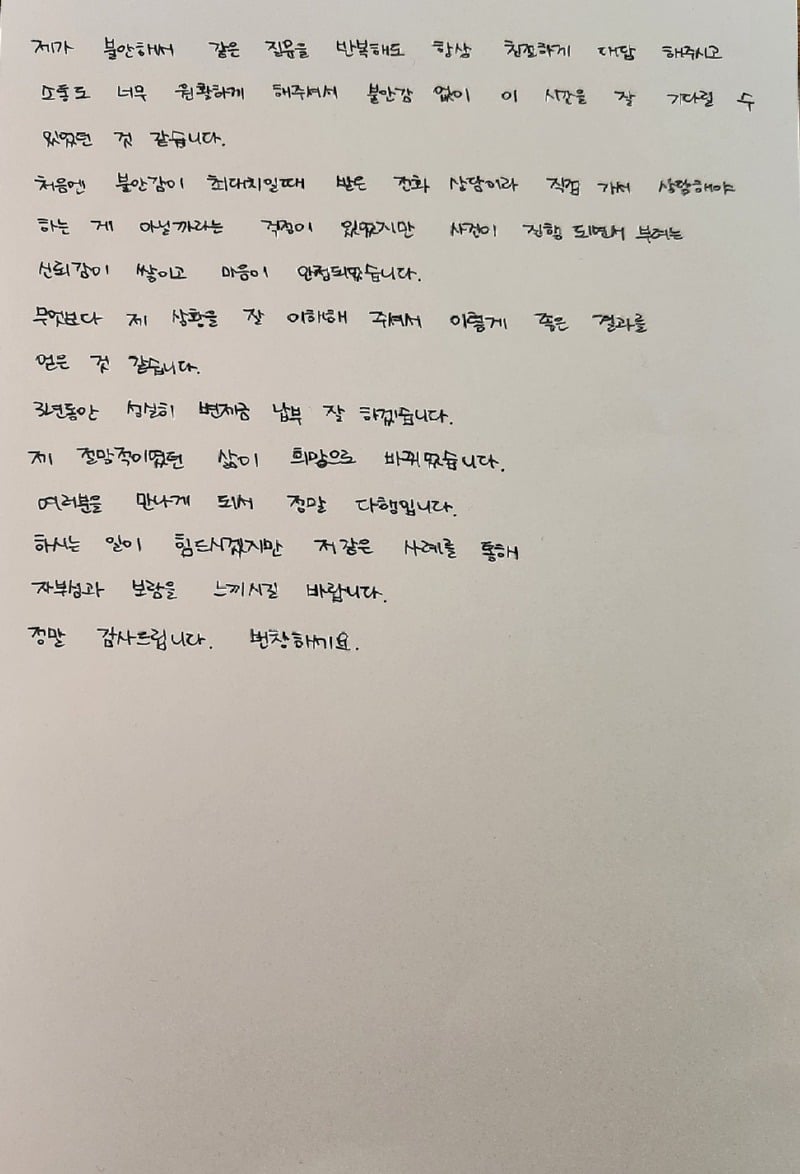 제가 불안해서 같은 질문을 반복해도 항상 친절하게 대답 해주시고
소통도 너무 원활하게 해주셔서 불안감 없이 이 시간을 잘 기다릴 수
있었던 것 같습니다.
처음엔 불안감이 최대치일때 받은 전화 상담이라 직접 가서 상담해야
하는 게 아닐까라는 걱정이 있었지만 사건이 진행 되면서 부터는
신뢰감이 쌓이고 마음이 안정되었습니다.
무엇보다 제 상황을 잘 이해해 주셔서 이렇게 좋은 결과를
얻은 것 같습니다.
3년동안 성실히 변제금 납부 잘 하겠습니다.
제 절망적이였던 삶이 희망으로 바뀌었습니다.
여러분을 만나게 되서 정말 다행입니다.
하시는 일이 힘드시겠지만 저같은 사례를 통해
자부심과 보람을 느끼시길 바랍니다.
정말 감사드립니다. 번창하세요.